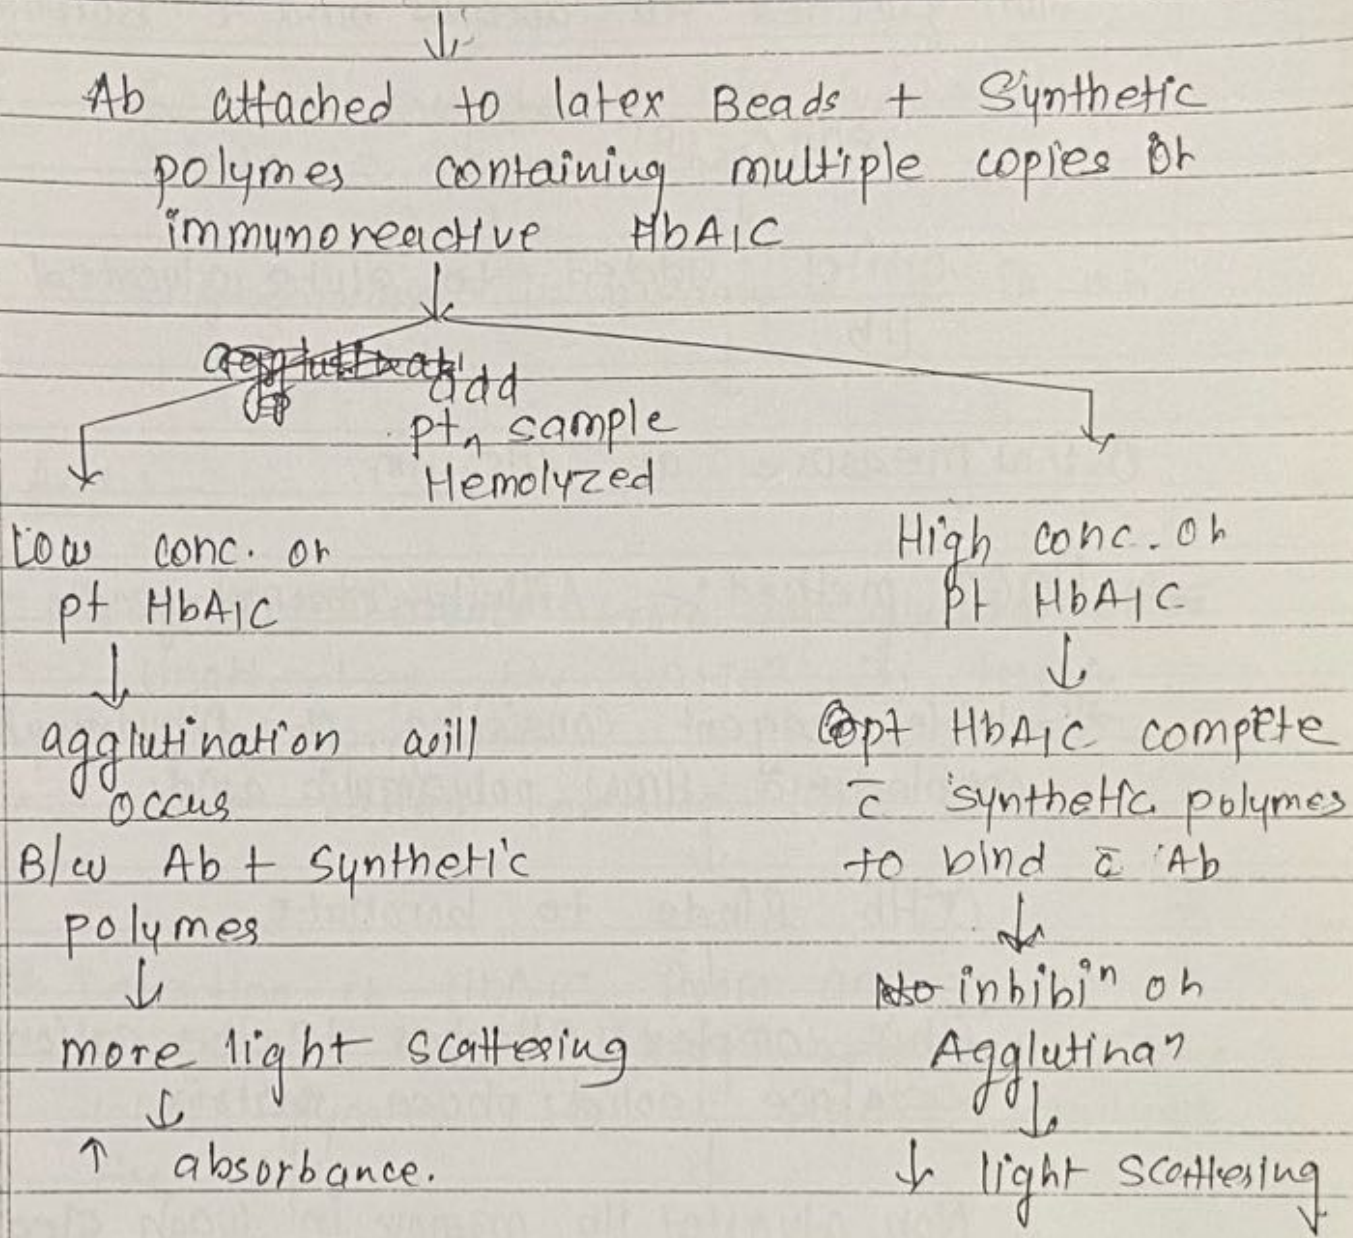 Ab attached to latex Beads + Synthetic
polymes containing multiple copies or
immunoreactive HbA1C
add
ptn sample
Hemolyzed
Low conc. or
pt HbA1C
agglutination will
occus
B/w Ab + Synthetic
polymes
↓
more light scattesing
↓
↑ absorbance.
High conc. or
pt HbA1C
↓
pt HbA1C compete
c̄ synthetic polymes
to bind c̄ Ab
↓
inhibiⁿ oh
Agglutinaⁿ
↓
↓ light scattesing